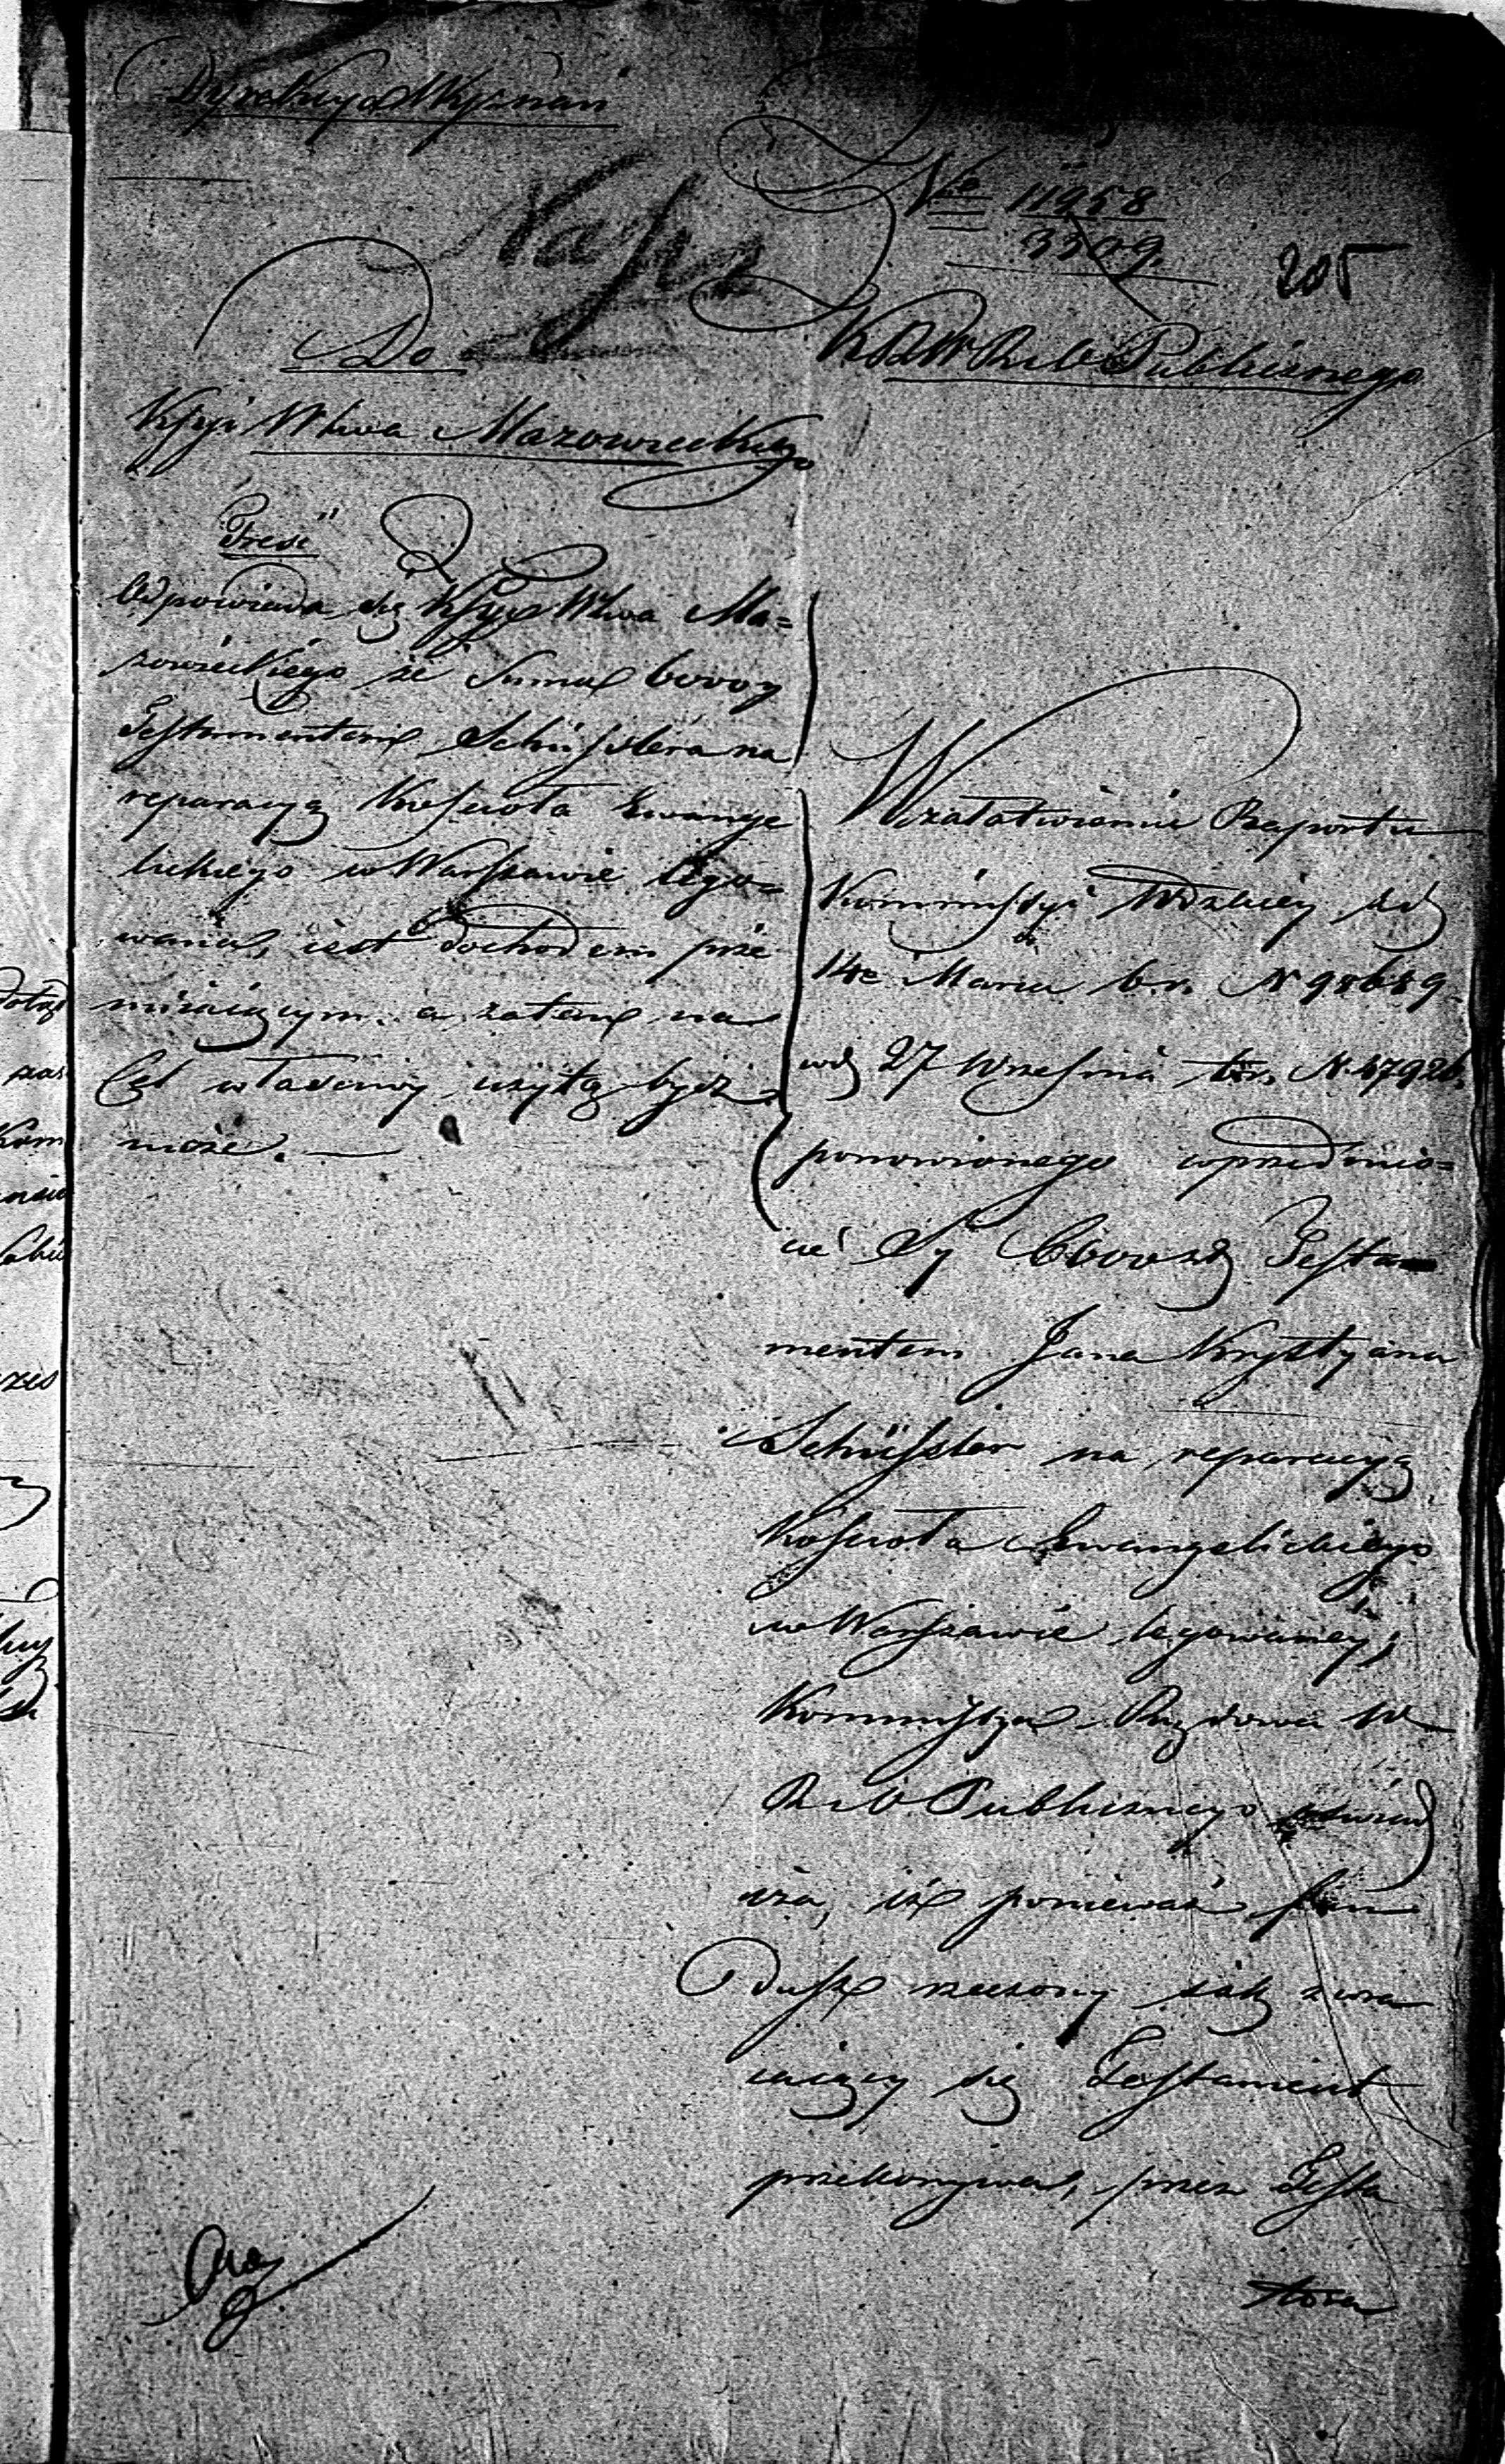 Dyrekcya Wyznań
Nº 11958
3509
205
Do
K R W R i O Publicznego
Kssyi Wtwa Mazowieckiego
Treść
Odpowiada się Kssyi Wtwa Ma=
zowieckiego że Summa 6000 z
Testamentem Schüsslera na
reparacyą Kościoła Ewange
lickiego w Warszawie lego=
wana, iest dochodem prze
miiaiącym, a zatem na
Cel właściwy użytą bydź
może.
W załatwieniu Raportu
Kommissyi Wdzkiey z d
14 Marca b. r. N 98689
i 27 Września t. r. N. 47926
ponowionego w przedmio=
cie Sy 6000 zł Testa=
mentem Jana Krystyana
Schüssler na reparacyą
Kościoła Ewangelickiego
w Warszawie legowaney;
Kommissya Rządowa W
R i O Publicznego oświad
cza, iż ponieważ fun
dusz rzeczony iak zwra
caiący się Testament
przekonywa, przez Testa
tora